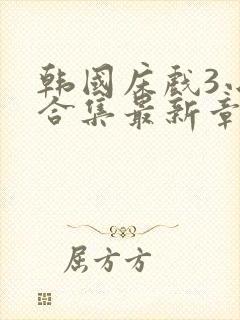 韩国床戏3.
合集最新章
屈方方